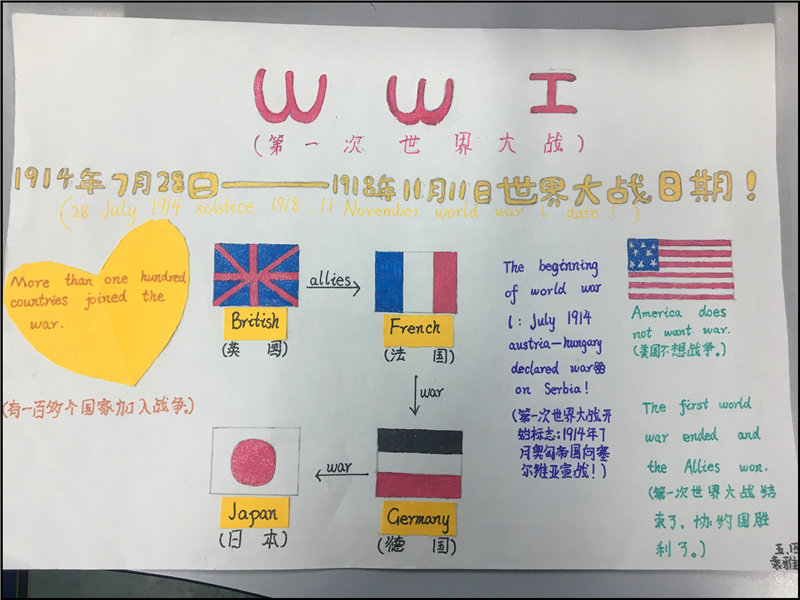 WWI
(第一次世界大战)
1914年7月28日——1918年11月11日世界大战日期!
(28 July 1914 solstice 1918.11 November world war l date!)
More than one hundred
countries joined the
war.
(有一百多个国家加入战争。)
British
(英国)
allies
French
(法国)
war
Germany
(德国)
war
Japan
(日本)
The beginning
of world war
l: July 1914
austria-hungary
declared war
on Serbia!
(第一次世界大战开
始标志:1914年7
月奥匈帝国向塞
尔维亚宣战!)
America does
not want war.
(美国不想战争。)
The first world
war ended and
the Allies won.
(第一次世界大战结
束了,协约国胜
利了。)